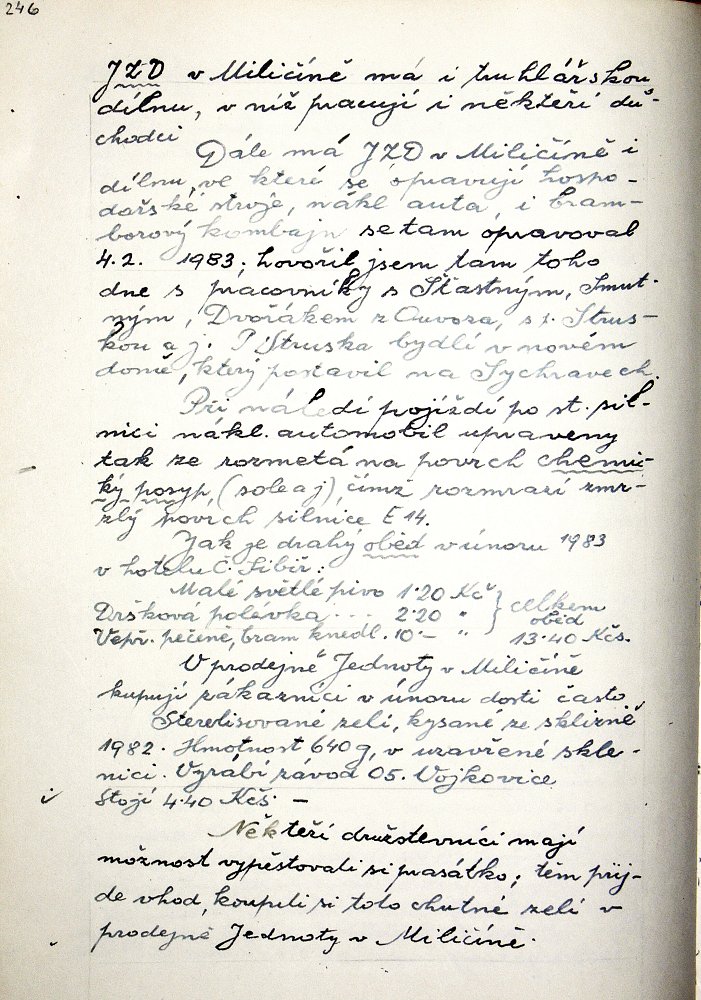 246
JZD v Miličíně má i truhlářskou
dílnu, v níž pracují i někteří dů-
chodci
Dále má JZD v Miličíně i
dílnu, ve které se opravují hospo-
dořské stroje, nákl auta, i bram-
borový kombajn se tam opravoval
4.2. 1983; hovořil jsem tam toho
dne s pracovníky s Šťastným, Smut-
ným, Dvořákem z Ouvoza, s f. Strus-
kou a j. P. Struska bydlí v novém
domě, který postavil na Sychravech.
Při náledí pojíždí po st. sil-
nici nákl. automobil upraveny
tak ze rozmetá na povrch chemic-
ký posyp, (sole a j), čímž rozmrazí zmr-
zlý povrch silnice E 14.
Jak je drahý oběd v únoru 1983
v hotelu Č. Sibiř:
Malé světlé pivo 1·20 Kč
Dršková polévka --- 2·20 "
celkem
oběd
Vepř. pečeně, bram knedl. 10·— "
13·40 Kčs.
V prodejně Jednoty v Miličíně
kupují zákazníci v únoru dosti často
Sterelisované zelí, kysané ze sklizně
1982. Hmotnost 640 g, v uzavřené skle-
nici. Vyrábí závod 05. Vojkovice
Stojí 4·40 Kčs. —
Někteří družstevníci mají
možnost vypěstovali si prasátko; těm přij-
de vhod, koupili si toto chutné zelí v
prodejně Jednoty v Miličíně.